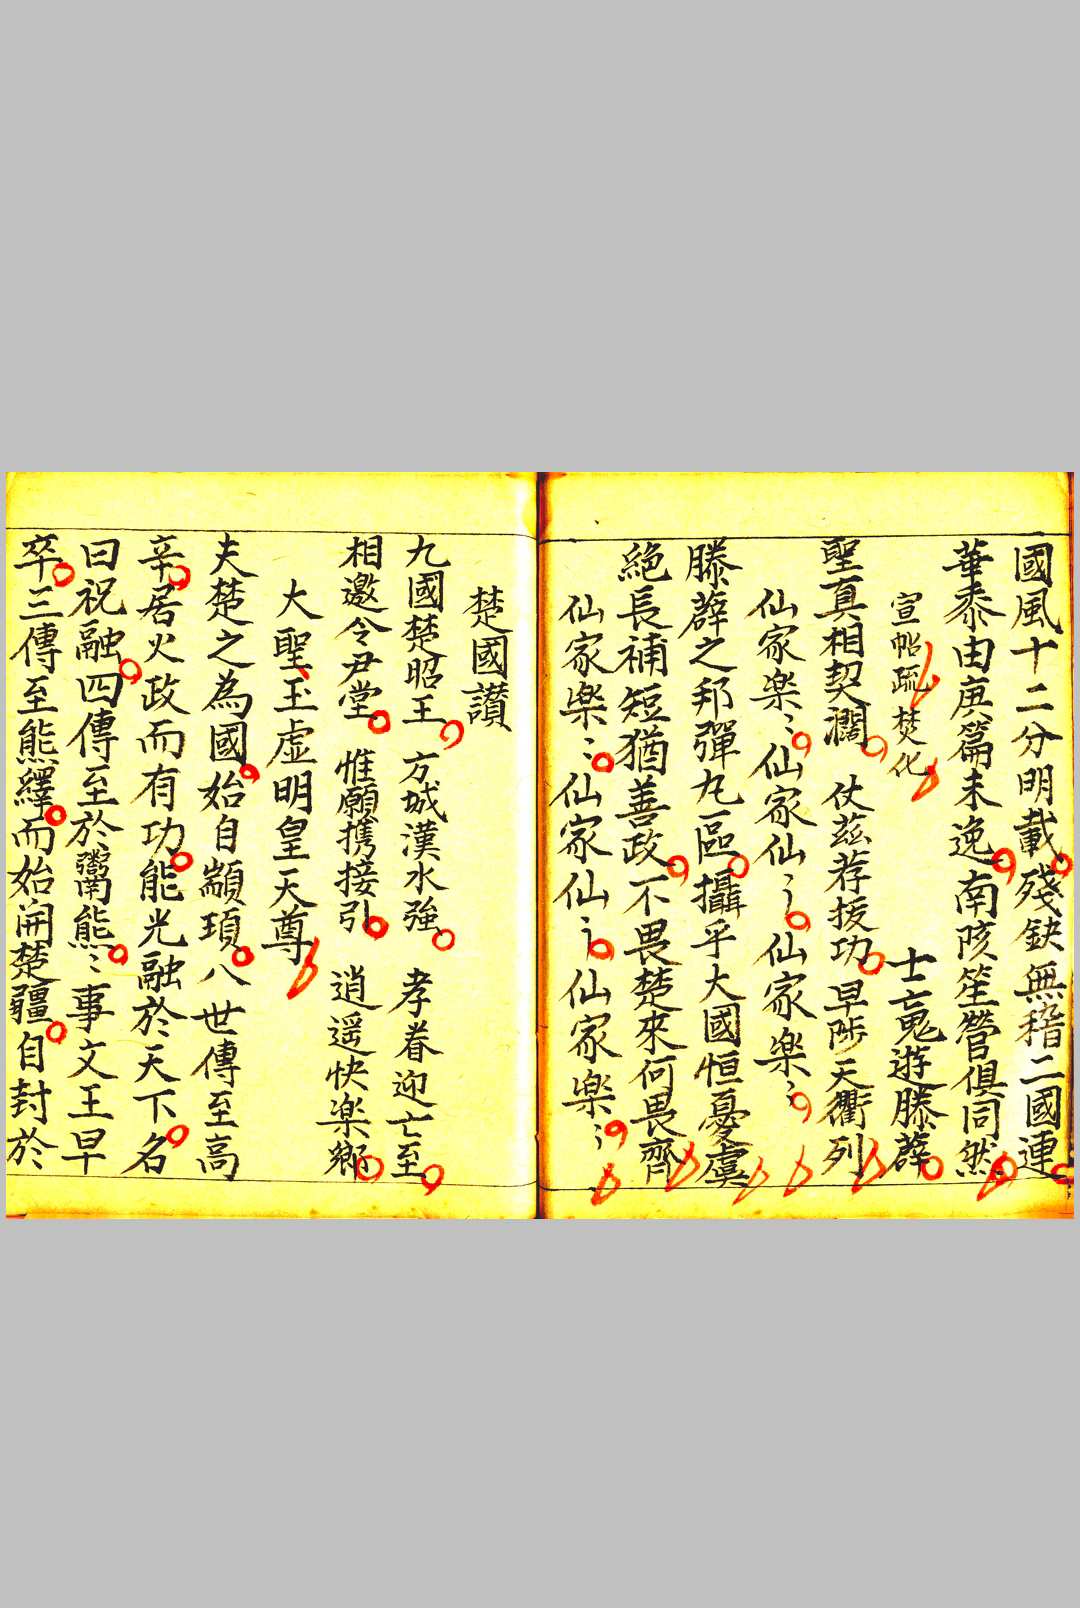 國風十二分明載殘缺無稽二國連
華黍由庚篇未逸南陔笙營俱同然
宣帖疏焚化 士亡鬼遊滕薛
聖真相契濶 仗茲荐援功早陟天衢列
仙家楽〻仙家仙〻仙家楽〻
滕薛之邦彈丸區攝乎大國恒憂虞
絕長補短猶善政不畏楚來何畏齊
仙家楽〻仙家仙〻仙家楽〻
楚國讃
九國楚昭王 方城漢水強 孝眷迎亡至
相邀令尹堂 惟願携接引 逍遥快楽鄉
大聖玉虛明皇天尊
夫楚之為國始自顓頊八世傳至高
辛居火政而有功能光融於天下名
曰祝融四傳至於鬻熊〻事文王早
卒三傳至熊繹而始開楚疆自封於